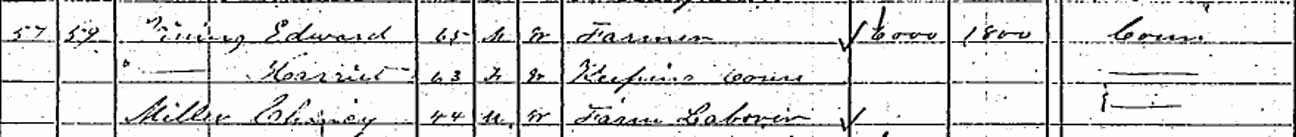 57 59 Vining Edward 65 M W Farmer ✓ 6000 1800 Conn
" —— Harriet 63 F W Keeping house ——
Miller Chancey 44 M. W Farm Laborer ✓ ——